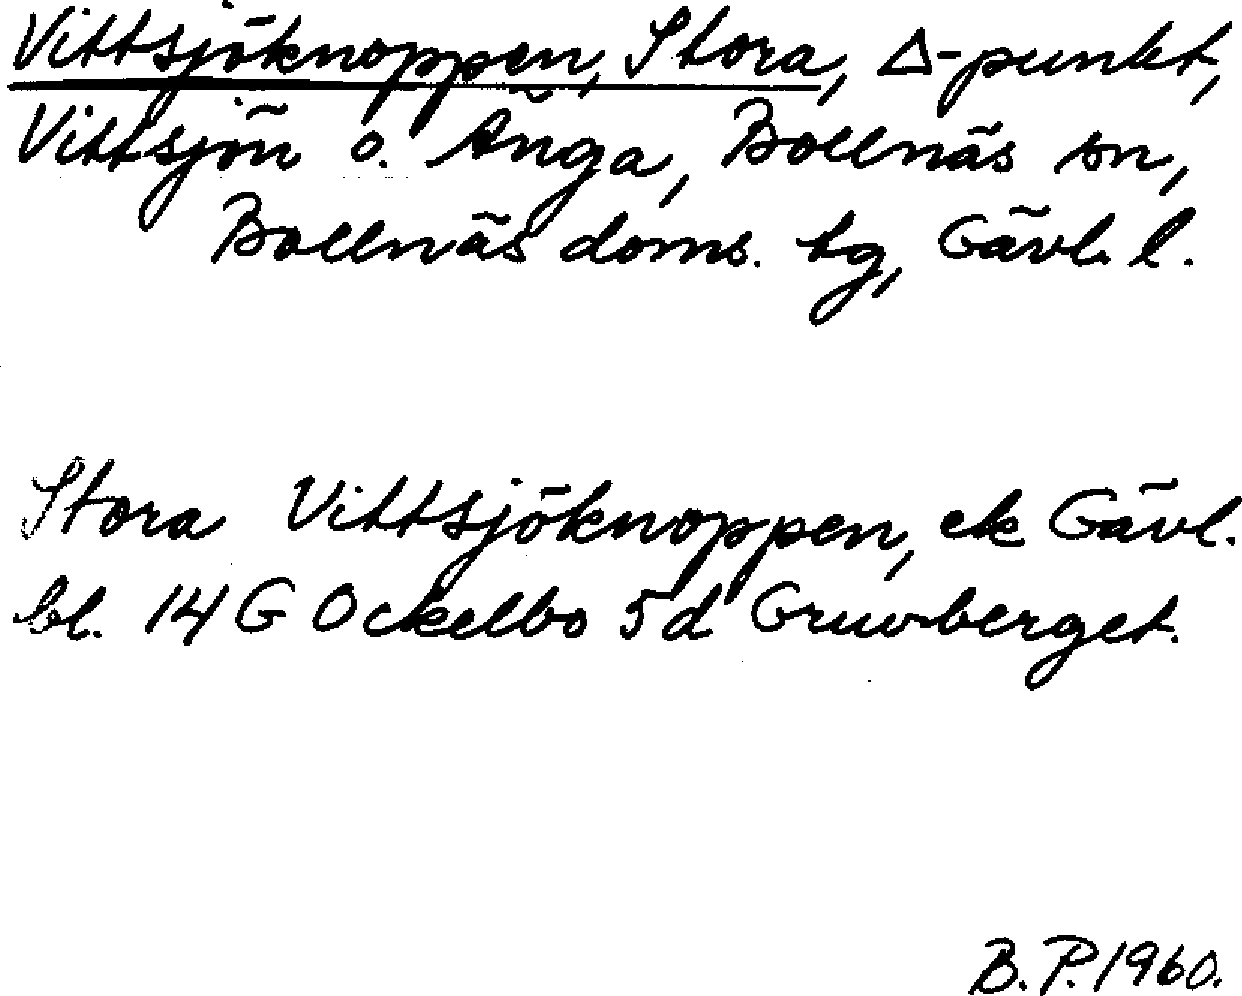 Vittsjöknoppen, Stora, Δ-punkt,
Vittsjön o. Änga, Bollnäs sn,
Bollnäs doms. tg, Gävl. l.
Stora Vittsjöknoppen, ek Gävl.
bl. 14 G Ockelbo 5d Gruvberget.
B. P. 1960.